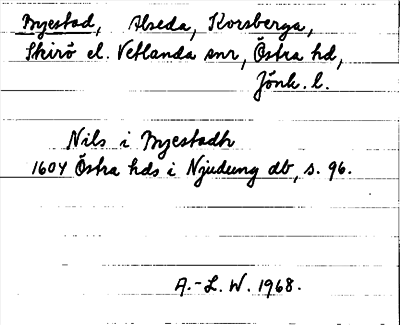 Myestad, Alseda, Korsberga,
Skirö el. Vetlanda snr, Östra hd,
Jönk. l.
Nils i Myestadh
1604 Östra hds i Njudung db, s. 96.
A.-L. W. 1968.